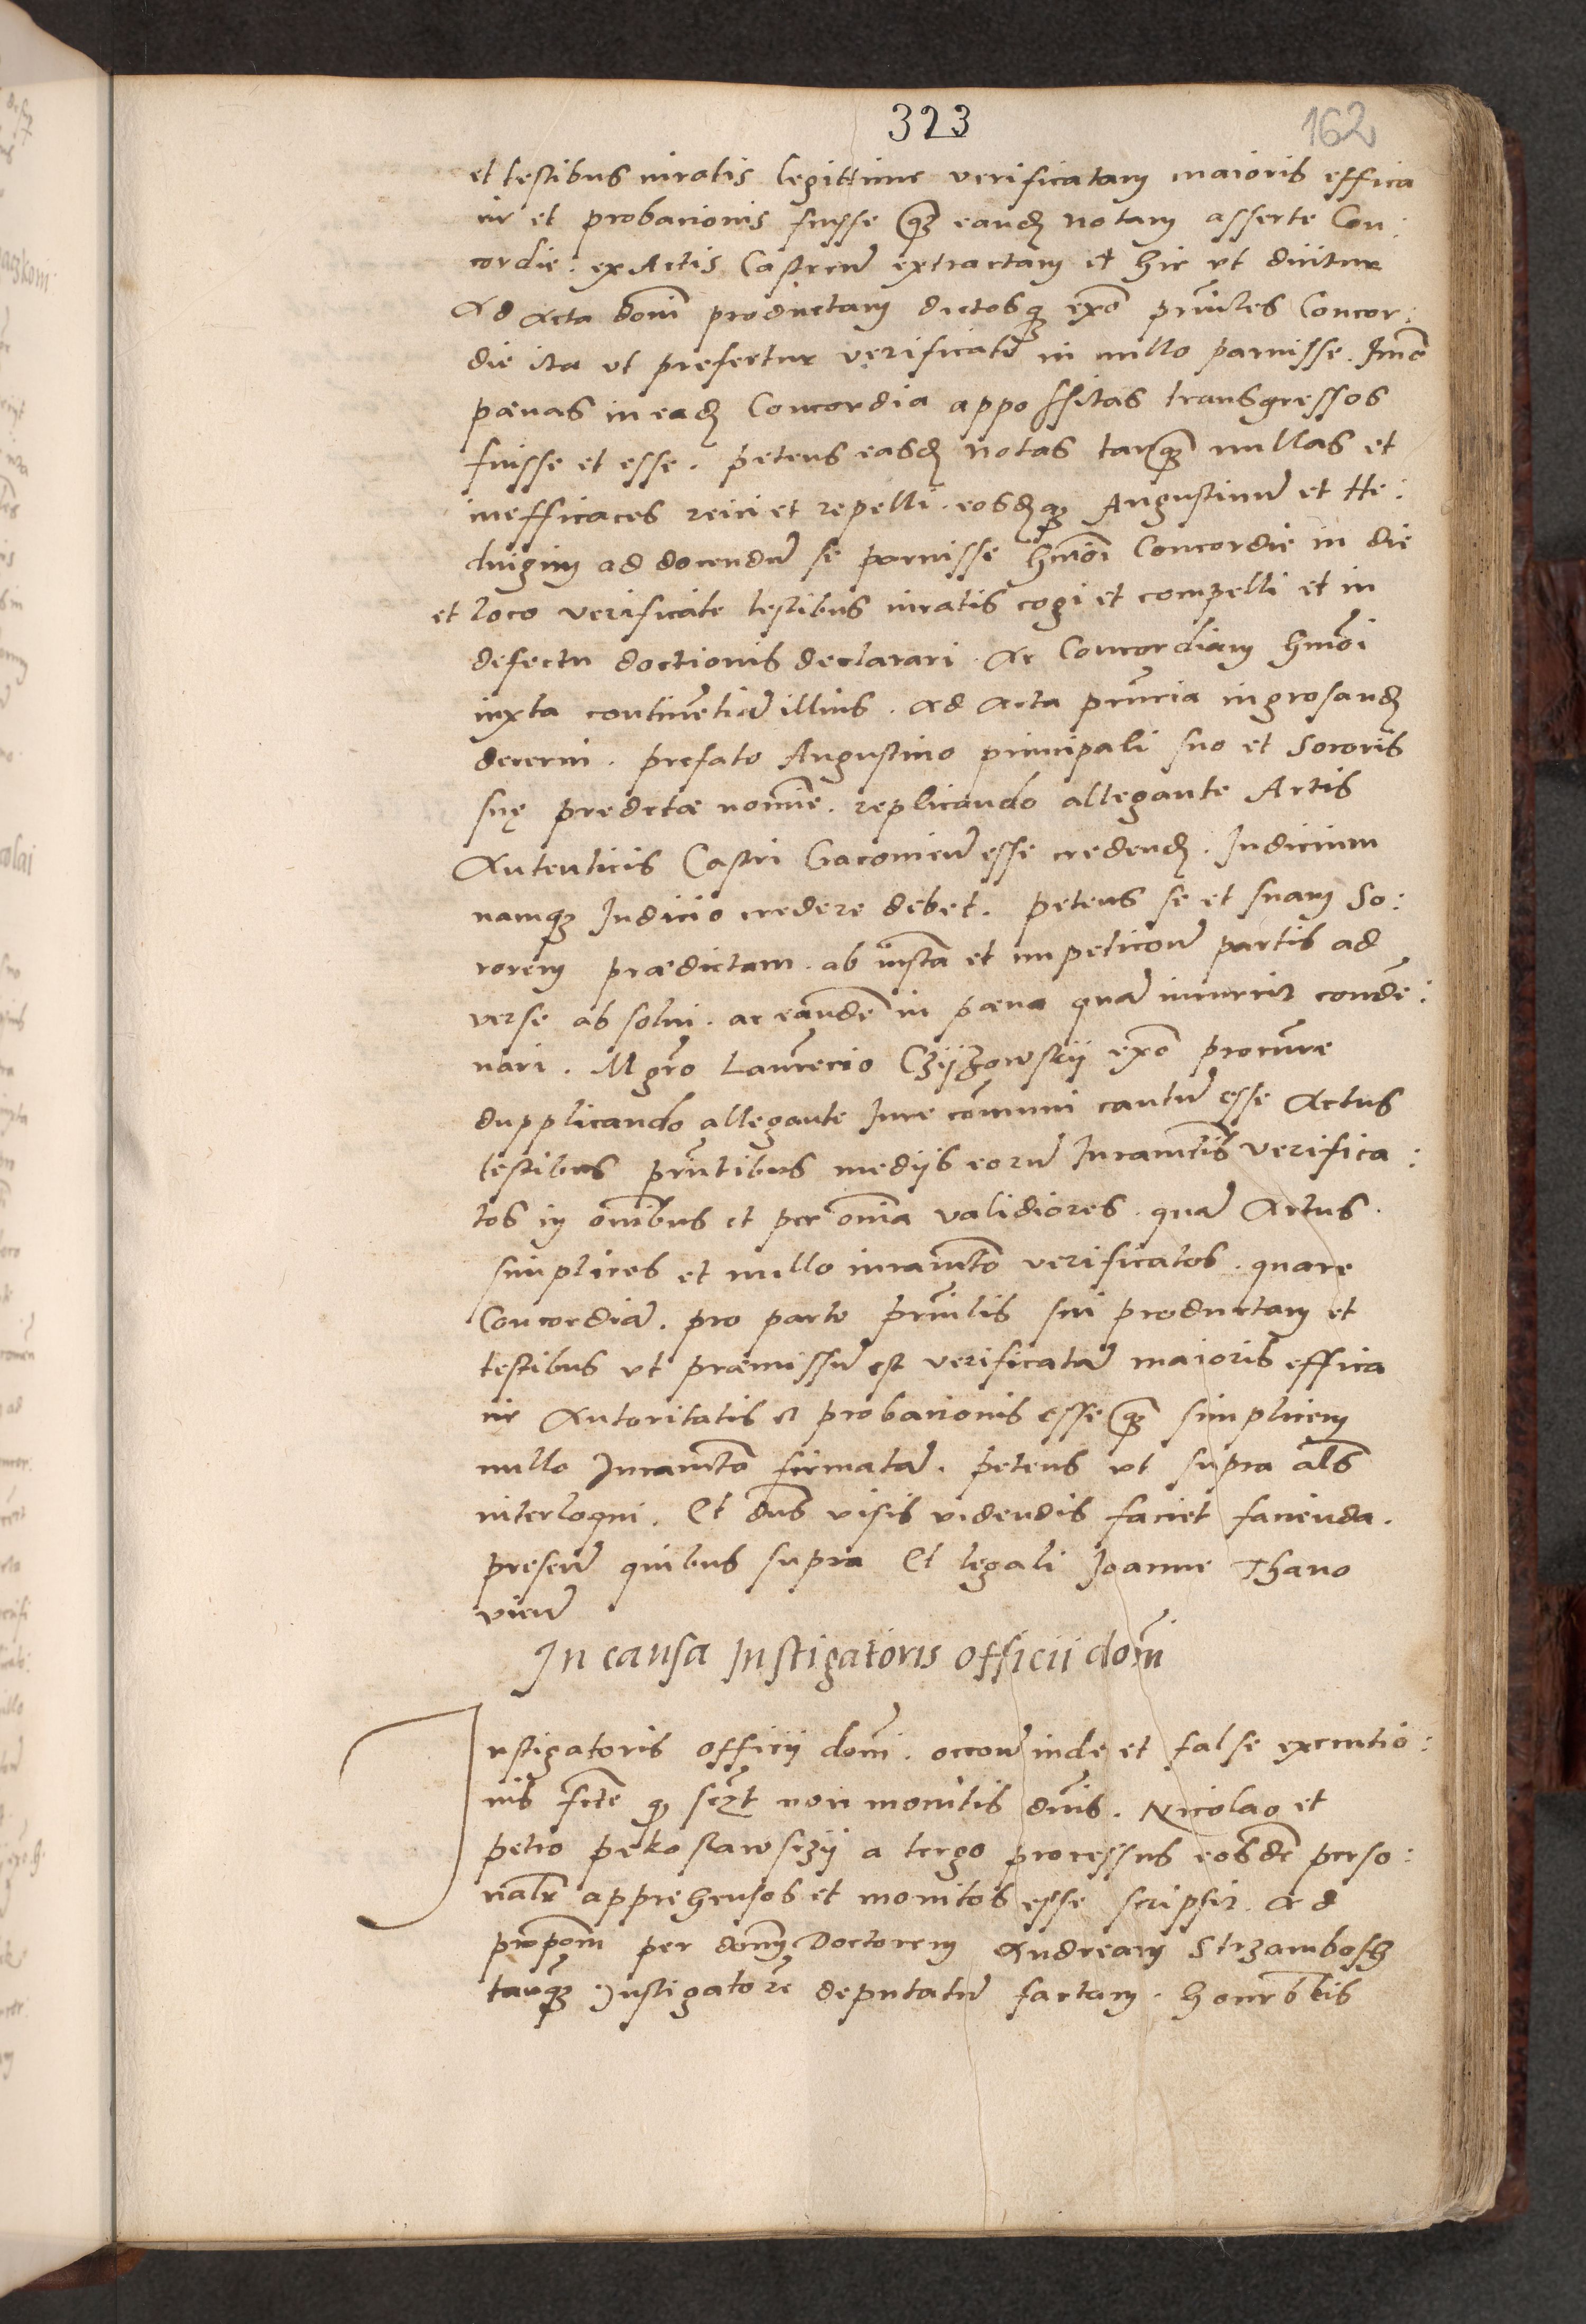 323
162
et testibus iuratis legittime verificatam maioris effica
cie et probacionis fuisse q̃ȝ eandẽ notam asserte Con:
cordie. ex Actis Castreñ extractam et hic ut dicitur
Ad Acta domi productam dictosqȝ exõ prīnc̃les Concor:
die ita ut prefertur verificatẽ in nullo paruisse. Imõ
pænas in eadẽ Concordia appossitas transgressos
fuisse et esse. petens easdẽ notas tanq̃ȝ nullas et
inefficaces reici et repelli. eosdẽqȝ Augustinũ et He:
duigim ad docendũ se paruisse hm̃oi Concordie in die
et loco verificate testibus iuratis cogi et compelli et in
defectu doctionis declarari. Ac Concordiam hm̃oi
iuxta continẽtiã illius. Ad Acta pñcia ingrosandẽ
decerni. prefato Augustino principali suo et Sororis
suę predictæ nomĩe. replicando allegante Actis
Autenticis Castri Cracovieñ esse credendẽ. Iudicium
namqȝ Iudicio credere debet. petens se et suam So:
rorem prædictam. ab instã et impeticoñ partis ad
verse absolui. ac eandẽ in pæna quã incurrit condẽ:
nari. Mgrõ Laurẽcio Czyzowsky exõ procur̃e
dupplicando allegante Iure cõmuni cautũ esse Actus
testibus pñtibus medijs eorũ Iuramẽtis verifica:
tos in om̃ibus et per om̃ia validiores. quã Actus.
simplices et nullo iuramẽto verificatos. quare
Concordiã. pro parte prīnc̃lis sui productam et
testibus ut præmissũ est verificatã maioris effica
cie Autoritatis et probacionis esse q̃ȝ simplicem
nullo Iuramẽto firmatã. petens ut supra als̃
interloqui. Et dñs visis videndis faciet facienda.
preseñ quibus supra Et legali Joanne Thano
vieñ
In causa Instigatoris officii domĩ
Instigatoris officij domĩ. occoñ inde et false executio:
nis fc̃te qȝ scȝt non monitis dñis. Nicolao et
petro pękoslawsczy a tergo processus eosdẽ perso:
nalr̃ apprehensos et monitos esse scripsit. Ad
propõm per domĩm Doctorem Andream Strzambosch
tanq̃ȝ Instigatorẽ deputatũ factam. honorbl̃is